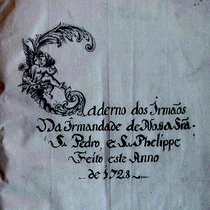 Caderno dos Irmãos
Da Irmandade de Nossa Srã.
S. Pedro, e S. Phelippe
Feito este Anno
de 1728